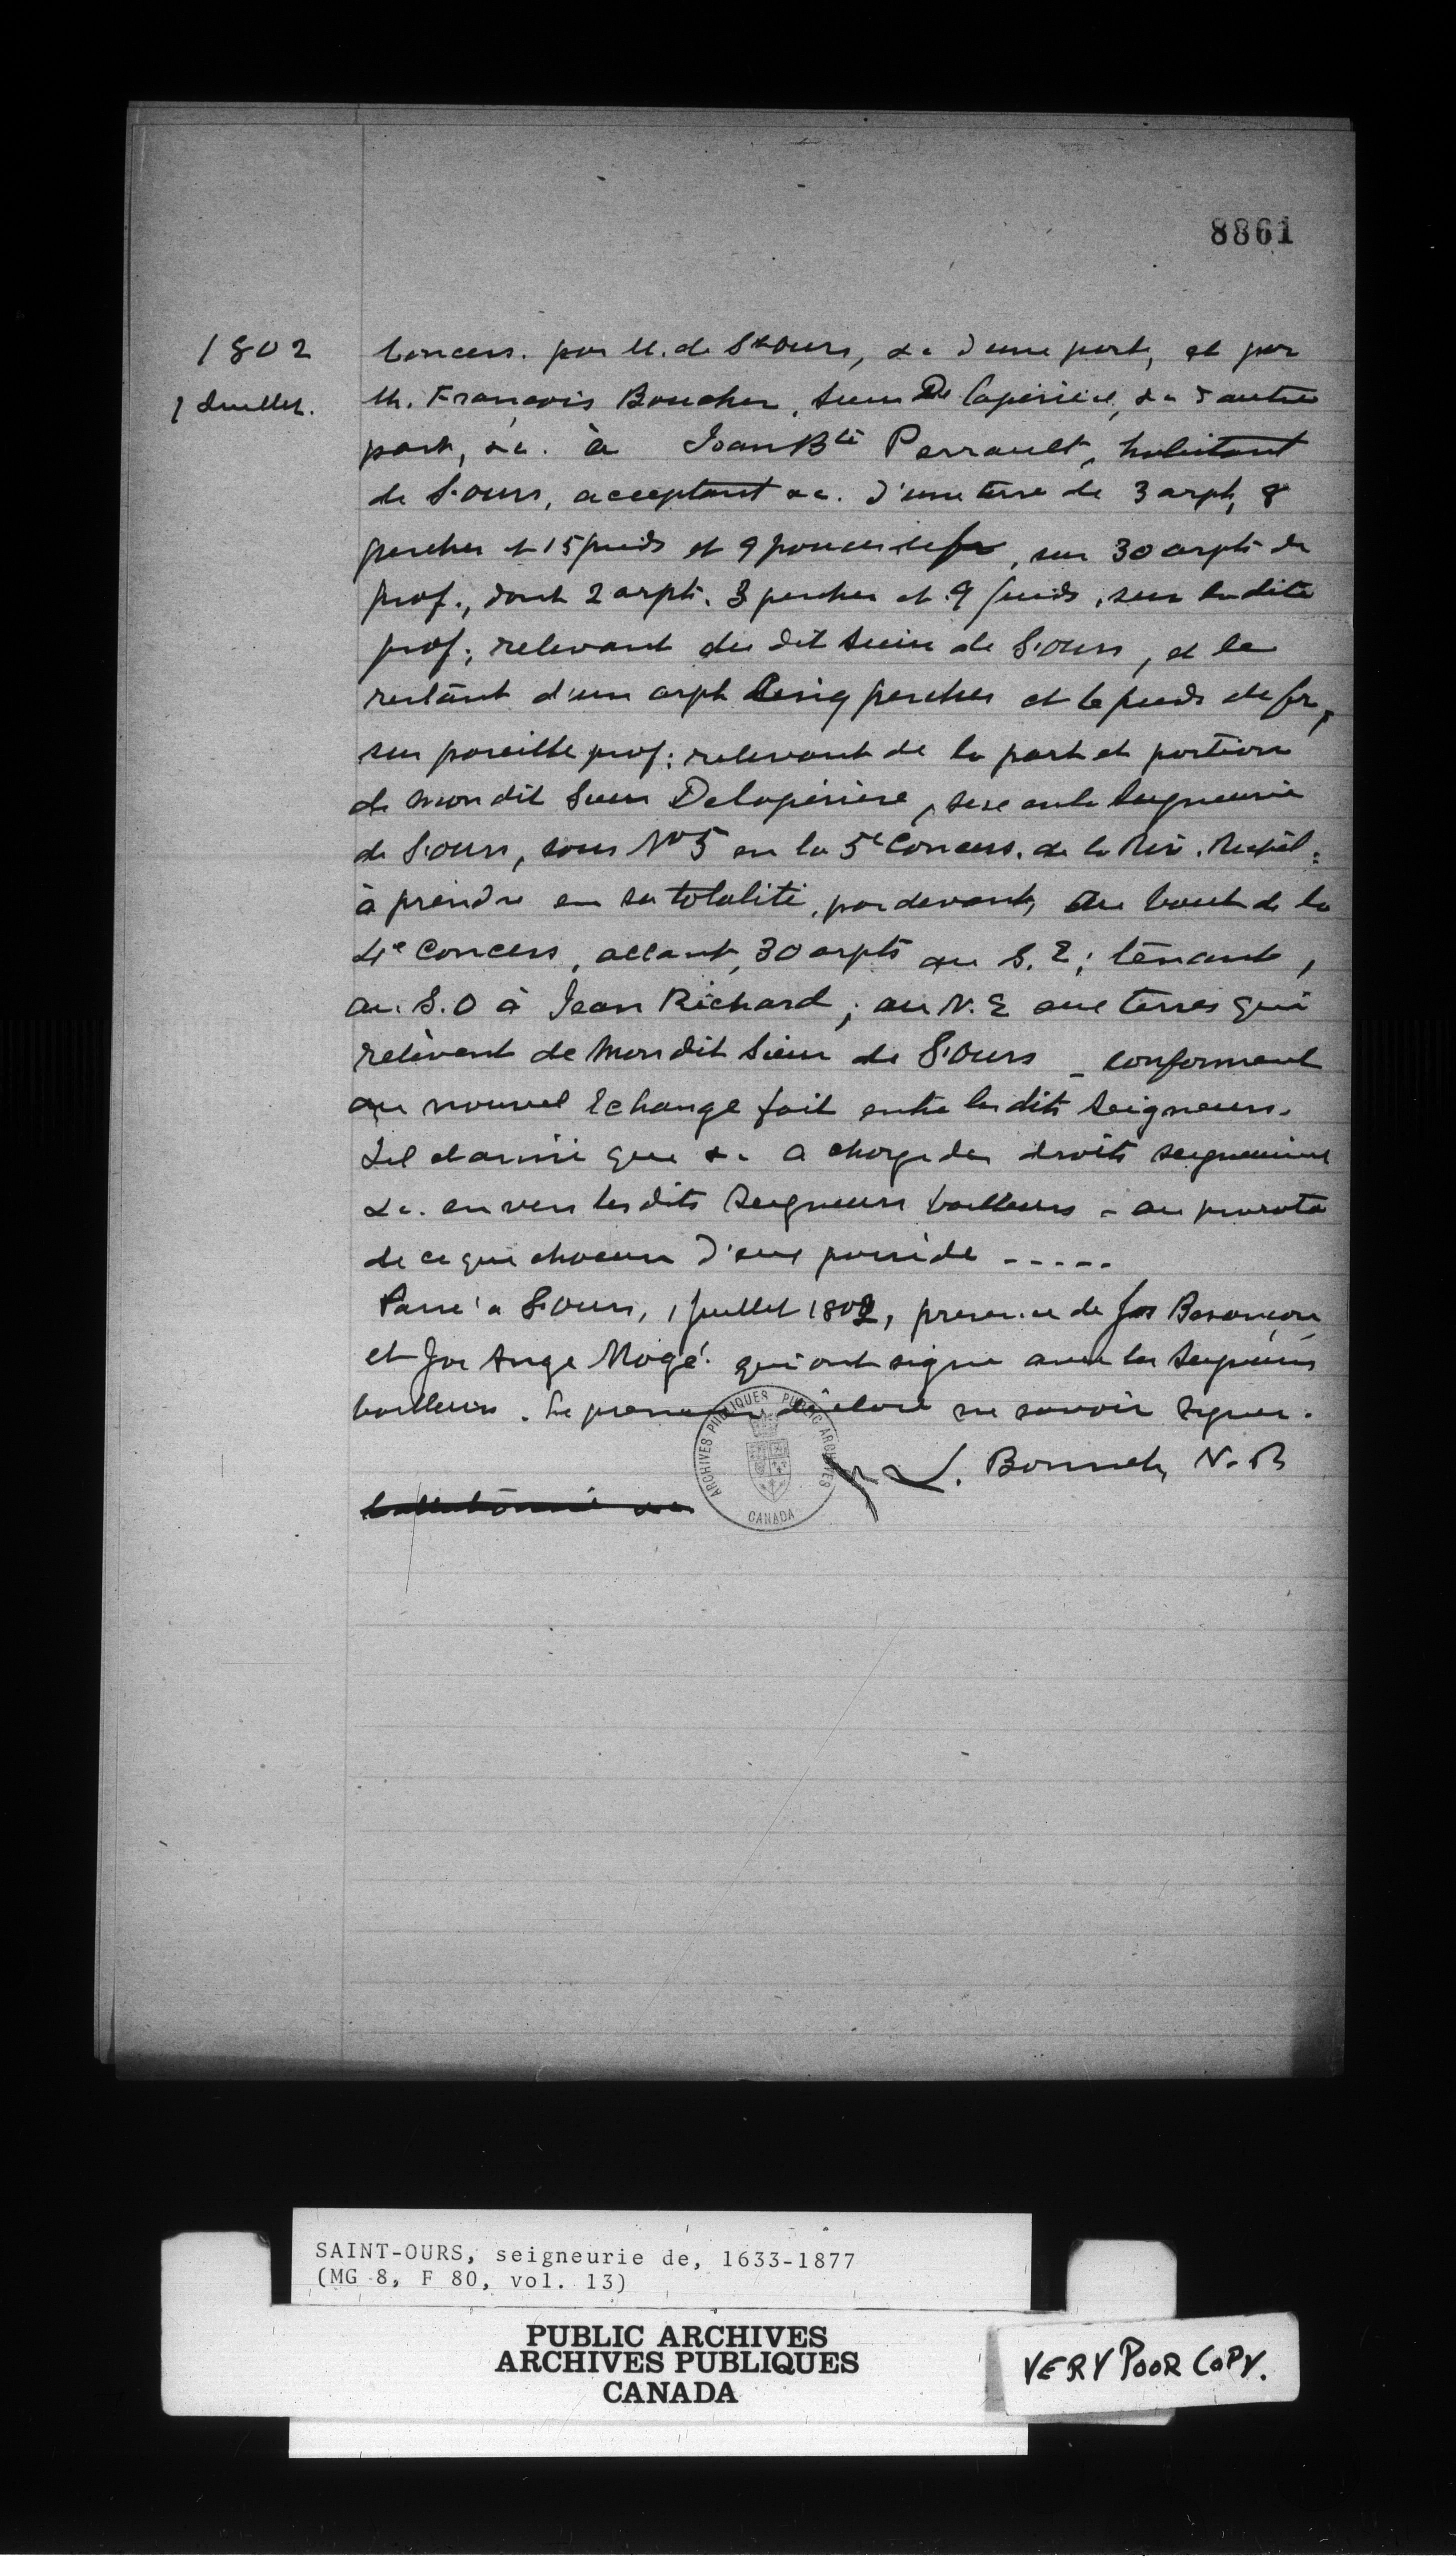 8861
1802
1 Juillet.
Concess. par M. de St Ours, &c d'une part, et par
M. François Boucher, sieur De Laperière, &c d'autre
part, &c. à Jean Bte Perrault, habitant
de S.Ours, acceptant &c. d'une terre de 3 arpts, 8
perches et 15 pieds et 9 pouces de fr, sur 30 arpts de
prof., dont 2 arpts. 3 perches et 9 pieds, sur la dite
prof; relevant du dit sieur de S.Ours, et le
restant d'un arpt Cinq perches et 6 pieds de fr,
sur pareille prof; relevant de la part et portion
de mon dit sieur Delaperière, sise en la Seigneurie
de S.Ours, sous No 5 en la 5e Concess. de la Riv.
à prendre en sa totalité, par devant, au bout de la
4e Concess, allant, 30 arpts au S.E; tenant,
au S.O à Jean Richard; au N.E aux terres qui
relèvent de mon dit sieur de S.Ours _ conformemt
au nouvel Echange fait entre les dits Seigneurs.
Tel et ainsi que &c a charge des droits seigneuriaux
&c. envers les dits Seigneurs bailleurs - au prorata
de ce que chacun d'eux possède -----
Passé a S.Ours, 1 Juillet 1802, presence de Jos Besançon
et Jos Ange Mogé qui ont signé avec les Seigneurs
bailleurs. Le preneur déclaré ne savoir signer.
L. Bonnet, N.P.
ARCHIVES PUBLIQUES PUBLIC ARCHIVES
CANADA
SAINT-OURS, seigneurie de, 1633-1877
(MG 8, F 80, vol. 13)
PUBLIC ARCHIVES
ARCHIVES PUBLIQUES
CANADA
VERY POOR COPY.